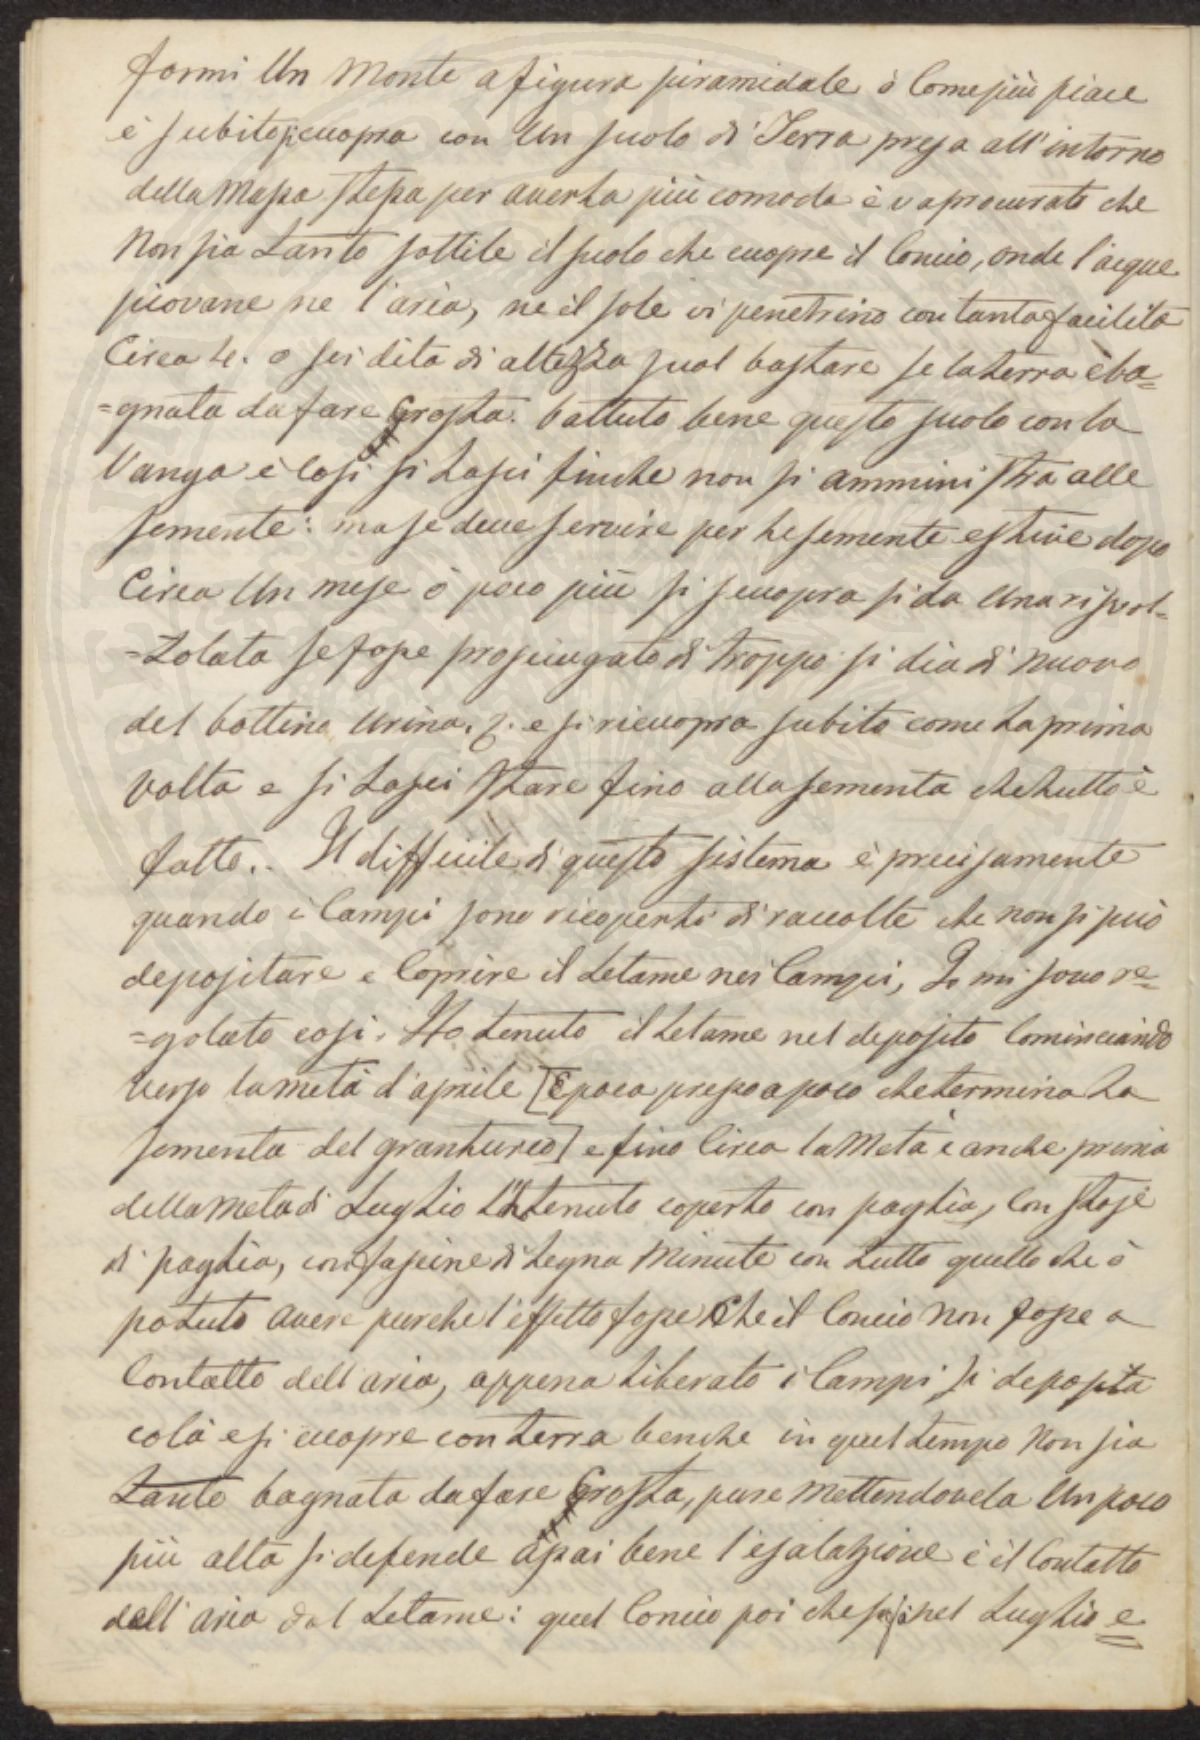 formi Un Monte a figura piramidale ò Come più piace
è subito si cuopra con Un suolo di Terra presa all'intorno
della Massa stessa per averla più comoda è va procurato che
Non sia tanto sottile il suolo che cuopre il Concio, onde l'acque
piovane ne l'aria, ne il sole vi penetrino con tanta facilità
Circa 4. o sei dita di altezza suol bastare se la terra è ba=
=gnata da fare Crosta. battuto bene questo suolo con la
Vanga è Così si Lasci finche non si amministra alle
semente: ma se deve servire per le semente estive dopo
Circa Un mese ò poco più si scuopra si da Una rispol=
=zolata se fosse prosciugato di troppo si dia di nuovo
del bottino Urina. e si ricuopra subito come la prima
volta e si Lasci stare fino alla sementa che tutto è
fatto.. Il difficile di questo sistema è precisamente
quando i Campi sono ricoperti di raccolte che non si può
depositare e Coprire il Letame nei Campi, Io mi sono re=
=golato così. Ho tenuto il Letame nel deposito Cominciando
verso la metà d'aprile [Epoca presso a poco che termina la
sementa del granturco] e fino Circa la Metà è anche prima
della Metà di Luglio L'ho tenuto coperto con paglia, Con stoje
di paglia, con fascine di Legna Minute con tutto quello che ò
potuto avere purche l'effetto fosse Che il Concio Non fosse a
Contatto dell'aria, appena Liberato i Campi si deposita
colà e si cuopre con terra benche in quel tempo Non sia
Tanto bagnata da fare Crosta, pure Mettendovela Un poco
più alta si defende assai bene l'esalazione è il Contatto
dell'aria dal Letame: quel Concio poi che si fà nel Luglio e